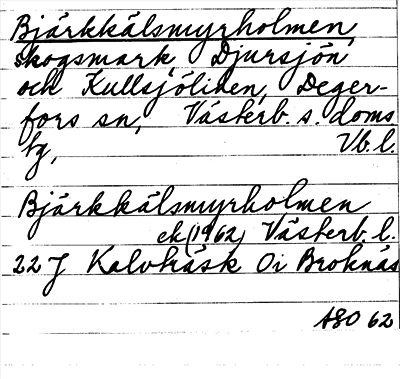 Bjärkkälsmyrholmen,
skogsmark, Djursjön
och Kullsjöliden, Deger-
fors sn, Västerb. s. doms
tg, Vb. l.
Bjärkkälsmyrholmen
ek (1962) Västerb. l.
22 J Kalvträsk 0i Broknäs
ASO 62